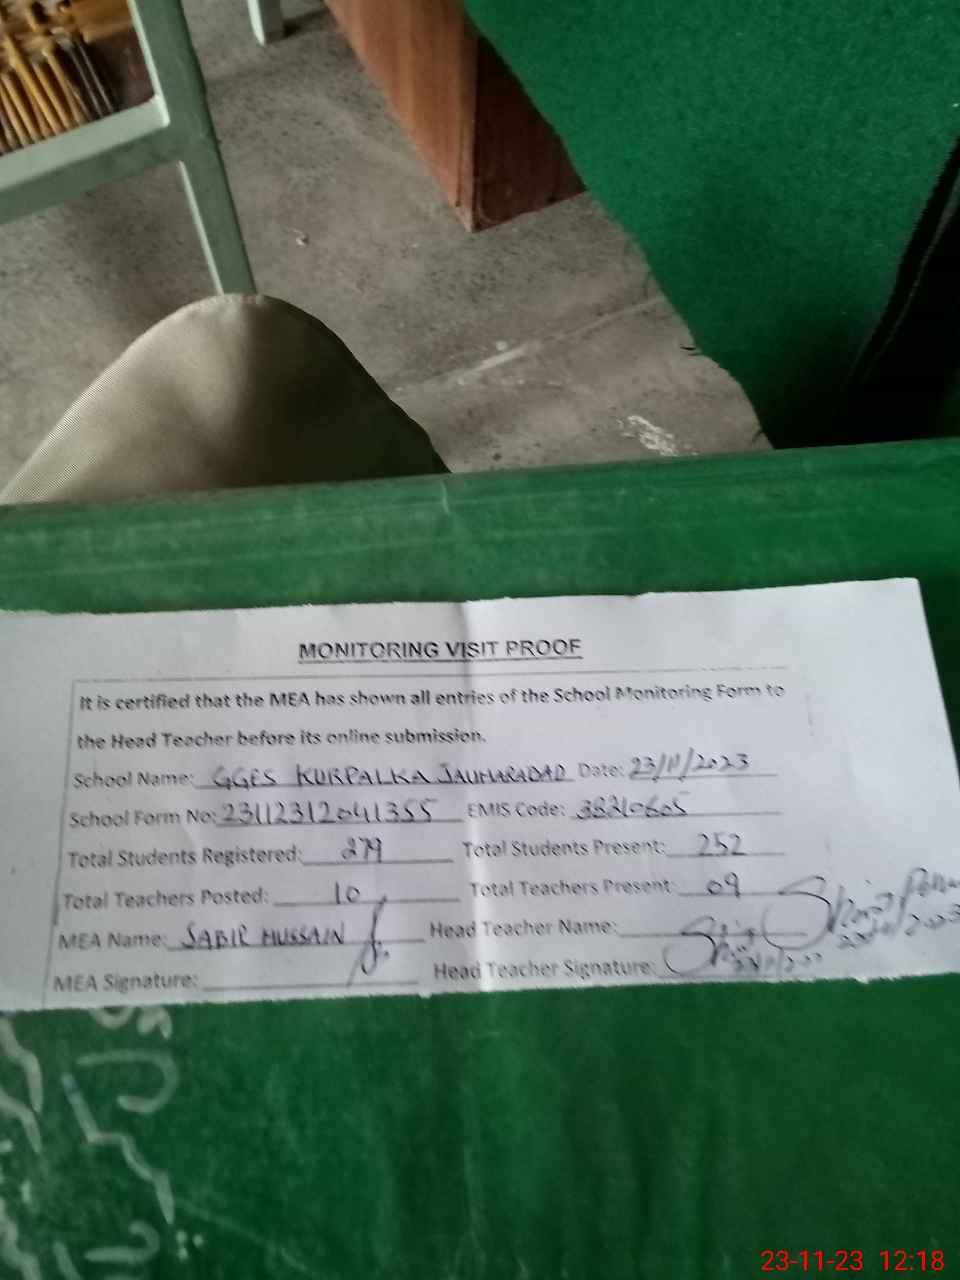 MONITORING VISIT PROOF
It is certified that the MEA has shown all entries of the School Monitoring Form to
the Head Teacher before its online submission.
School Name: GGES KURPALKA JAUHARABAD Date: 23/11/2023
School Form No: 23112312041355 EMIS Code: 38210605
Total Students Registered: 279 Total Students Present: 252
Total Teachers Posted: 10 Total Teachers Present: 09
MEA Name: SABIR HUSSAIN Head Teacher Name:
MEA Signature: Head Teacher Signature:
23-11-23 12:18